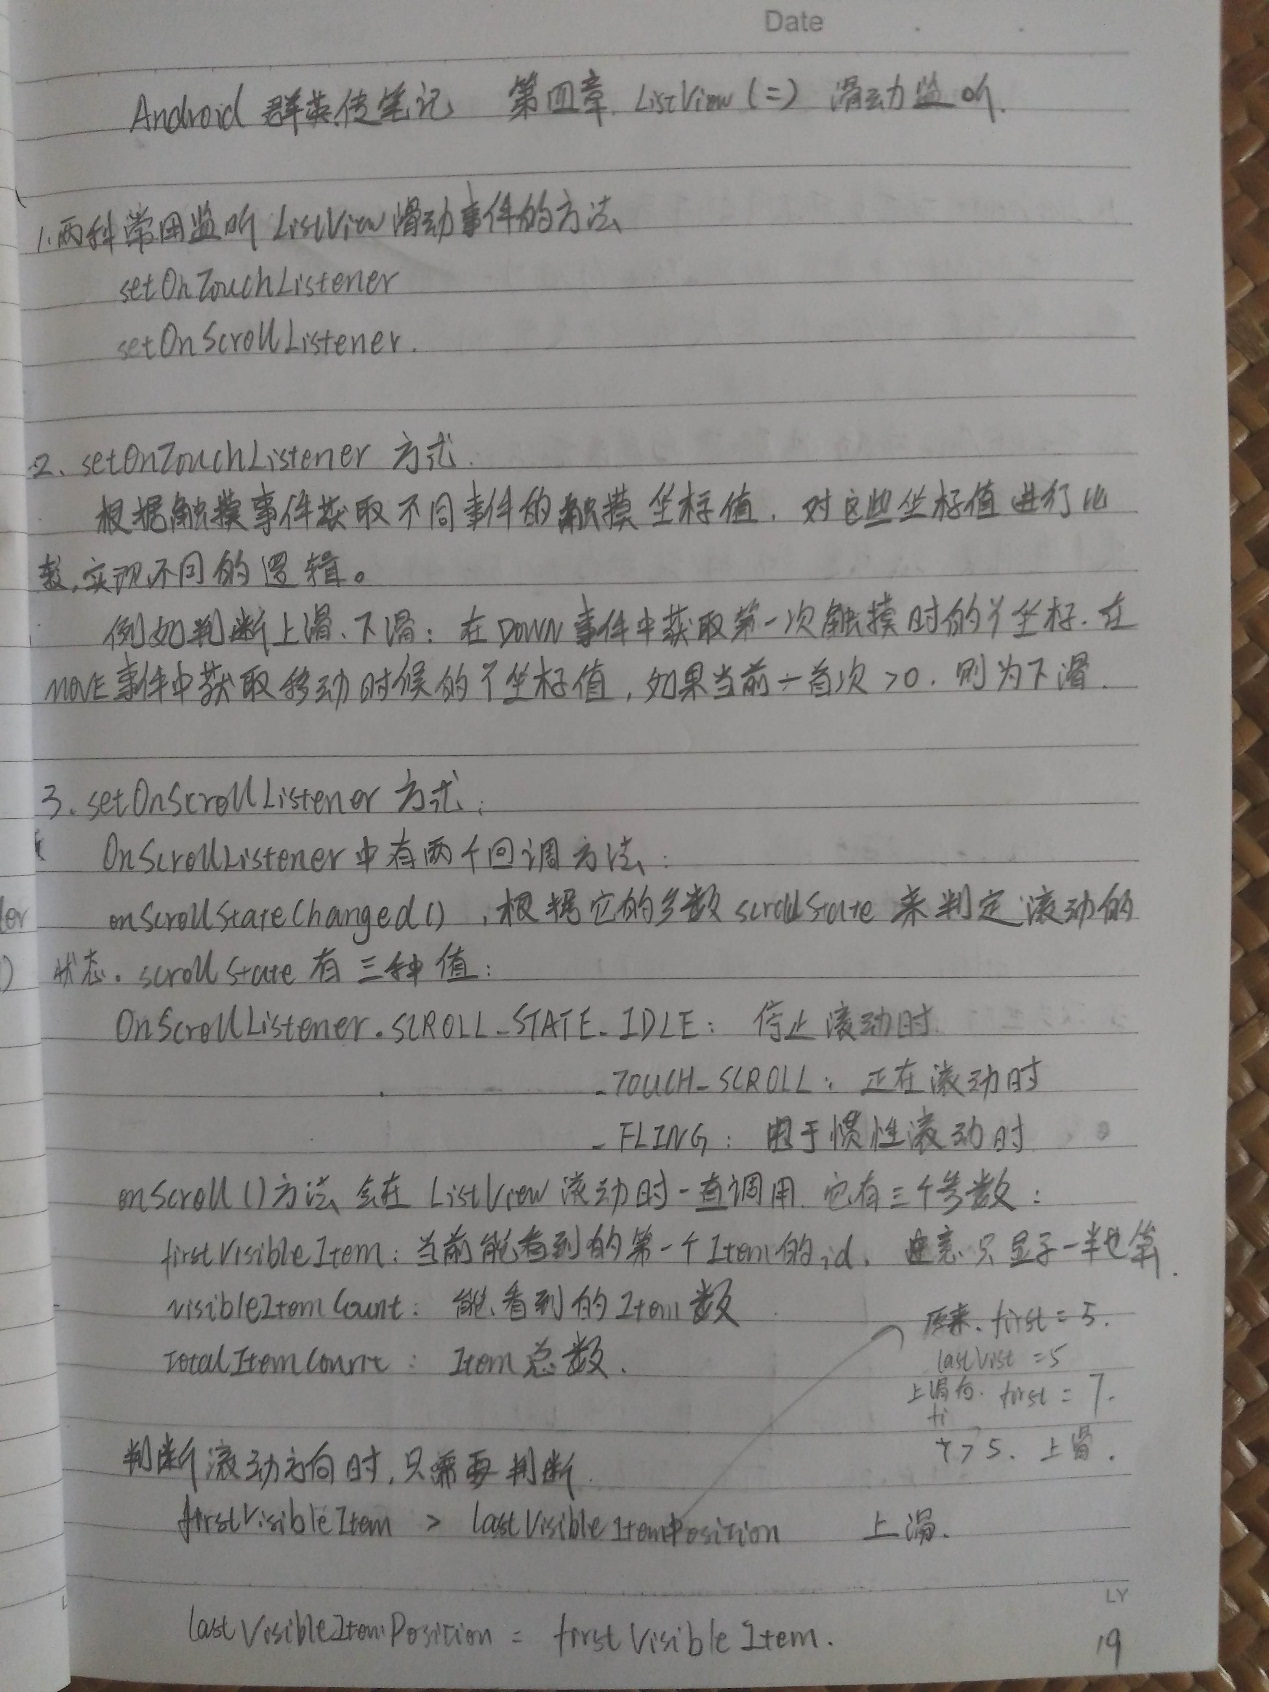 Date
Android 群英传笔记 第四章 ListView (二) 滑动监听.
1.两种常用监听 ListView 滑动事件的方法
setOnTouchListener
setOnScrollListener.
2. setOnTouchListener 方式.
根据触摸事件获取不同事件的触摸坐标值, 对这些坐标值进行比
较,实现不同的逻辑。
例如判断上滑、下滑: 在DOWN事件中获取第一次触摸时的Y坐标. 在
MOVE事件中获取移动时候的Y坐标值, 如果当前-首次 >0. 则为下滑.
3. setOnScrollListener 方式:
OnScrollListener 中有两个回调方法:
onScrollStateChanged() , 根据它的参数 scrollState 来判定滚动的
状态. scrollState 有三种值:
OnScrollListener.SCROLL_STATE_IDLE: 停止滚动时
_TOUCH_SCROLL: 正在滚动时
_FLING: 用于惯性滚动时
onScroll()方法会在 ListView 滚动时一直调用. 它有三个参数:
firstVisibleItem: 当前能看到的第一个Item的id. 注意只显示一半也算.
visibleItemCount: 能看到的Item数
totalItemCount: Item总数.
原来. first = 5.
lastVist = 5
上滑向. first = 7.
fi
7 > 5. 上滑.
判断滚动方向时,只需要判断
firstVisibleItem > lastVisibleItemPosition 上滑.
lastVisibleItemPosition = firstVisibleItem.
LY
19
ler
()